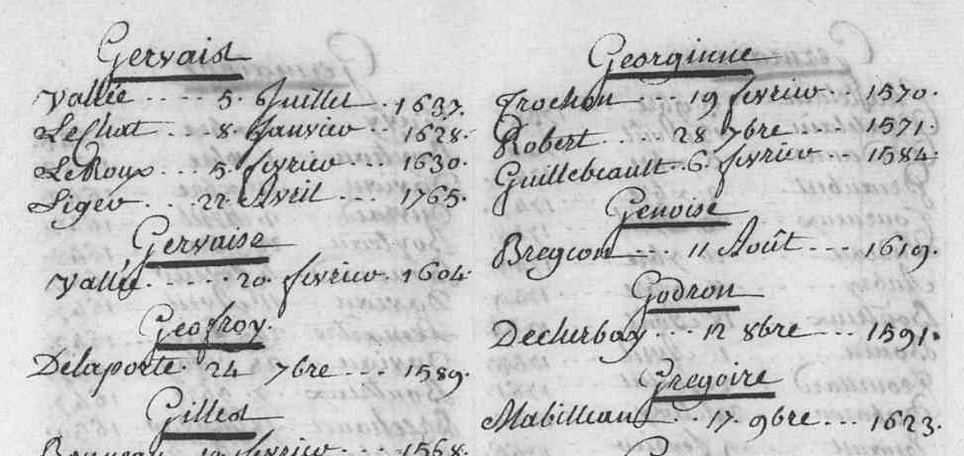 Gervais
Vallée .... 5. Juillet . 1637.
LeChat ... 8. Janvier ... 1628.
LeRoux ... 5. fevrier ... 1630.
Liger ... 22. Avril ... 1765.
Gervaise
Vallée ..... 20. fevrier . 1604.
Geofroy.
Delaporte . 24 7bre .... 1589.
Gilles
fevrier ... 1568.
Georginne
Trochon ... 19 fevrier ... 1570.
Robert .... 28 7bre ... 1571.
Guillebeault . 6. fevrier ... 1584.
Genoise
Bregeon ... 11 Août ... 1619.
Godron
Decherbay .. 12 8bre ... 1591.
Gregoire
Mabilleau .. 17. 9bre ... 1623.